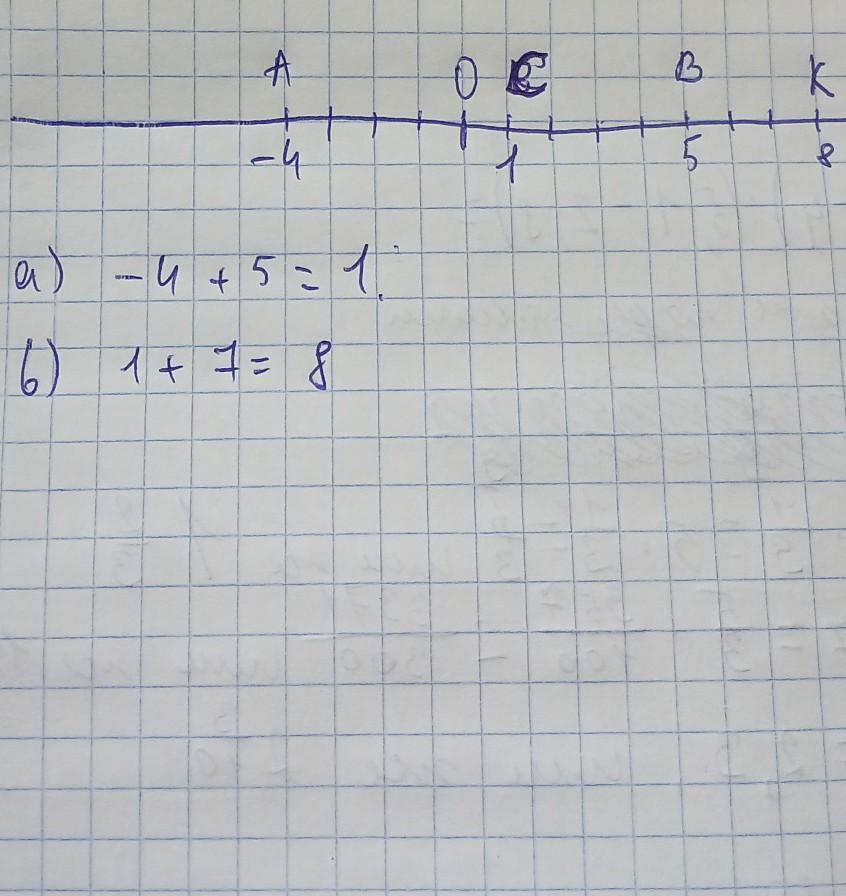 A O C B K
-4 1 5 8
а) -4 + 5 = 1.
б) 1 + 7 = 8